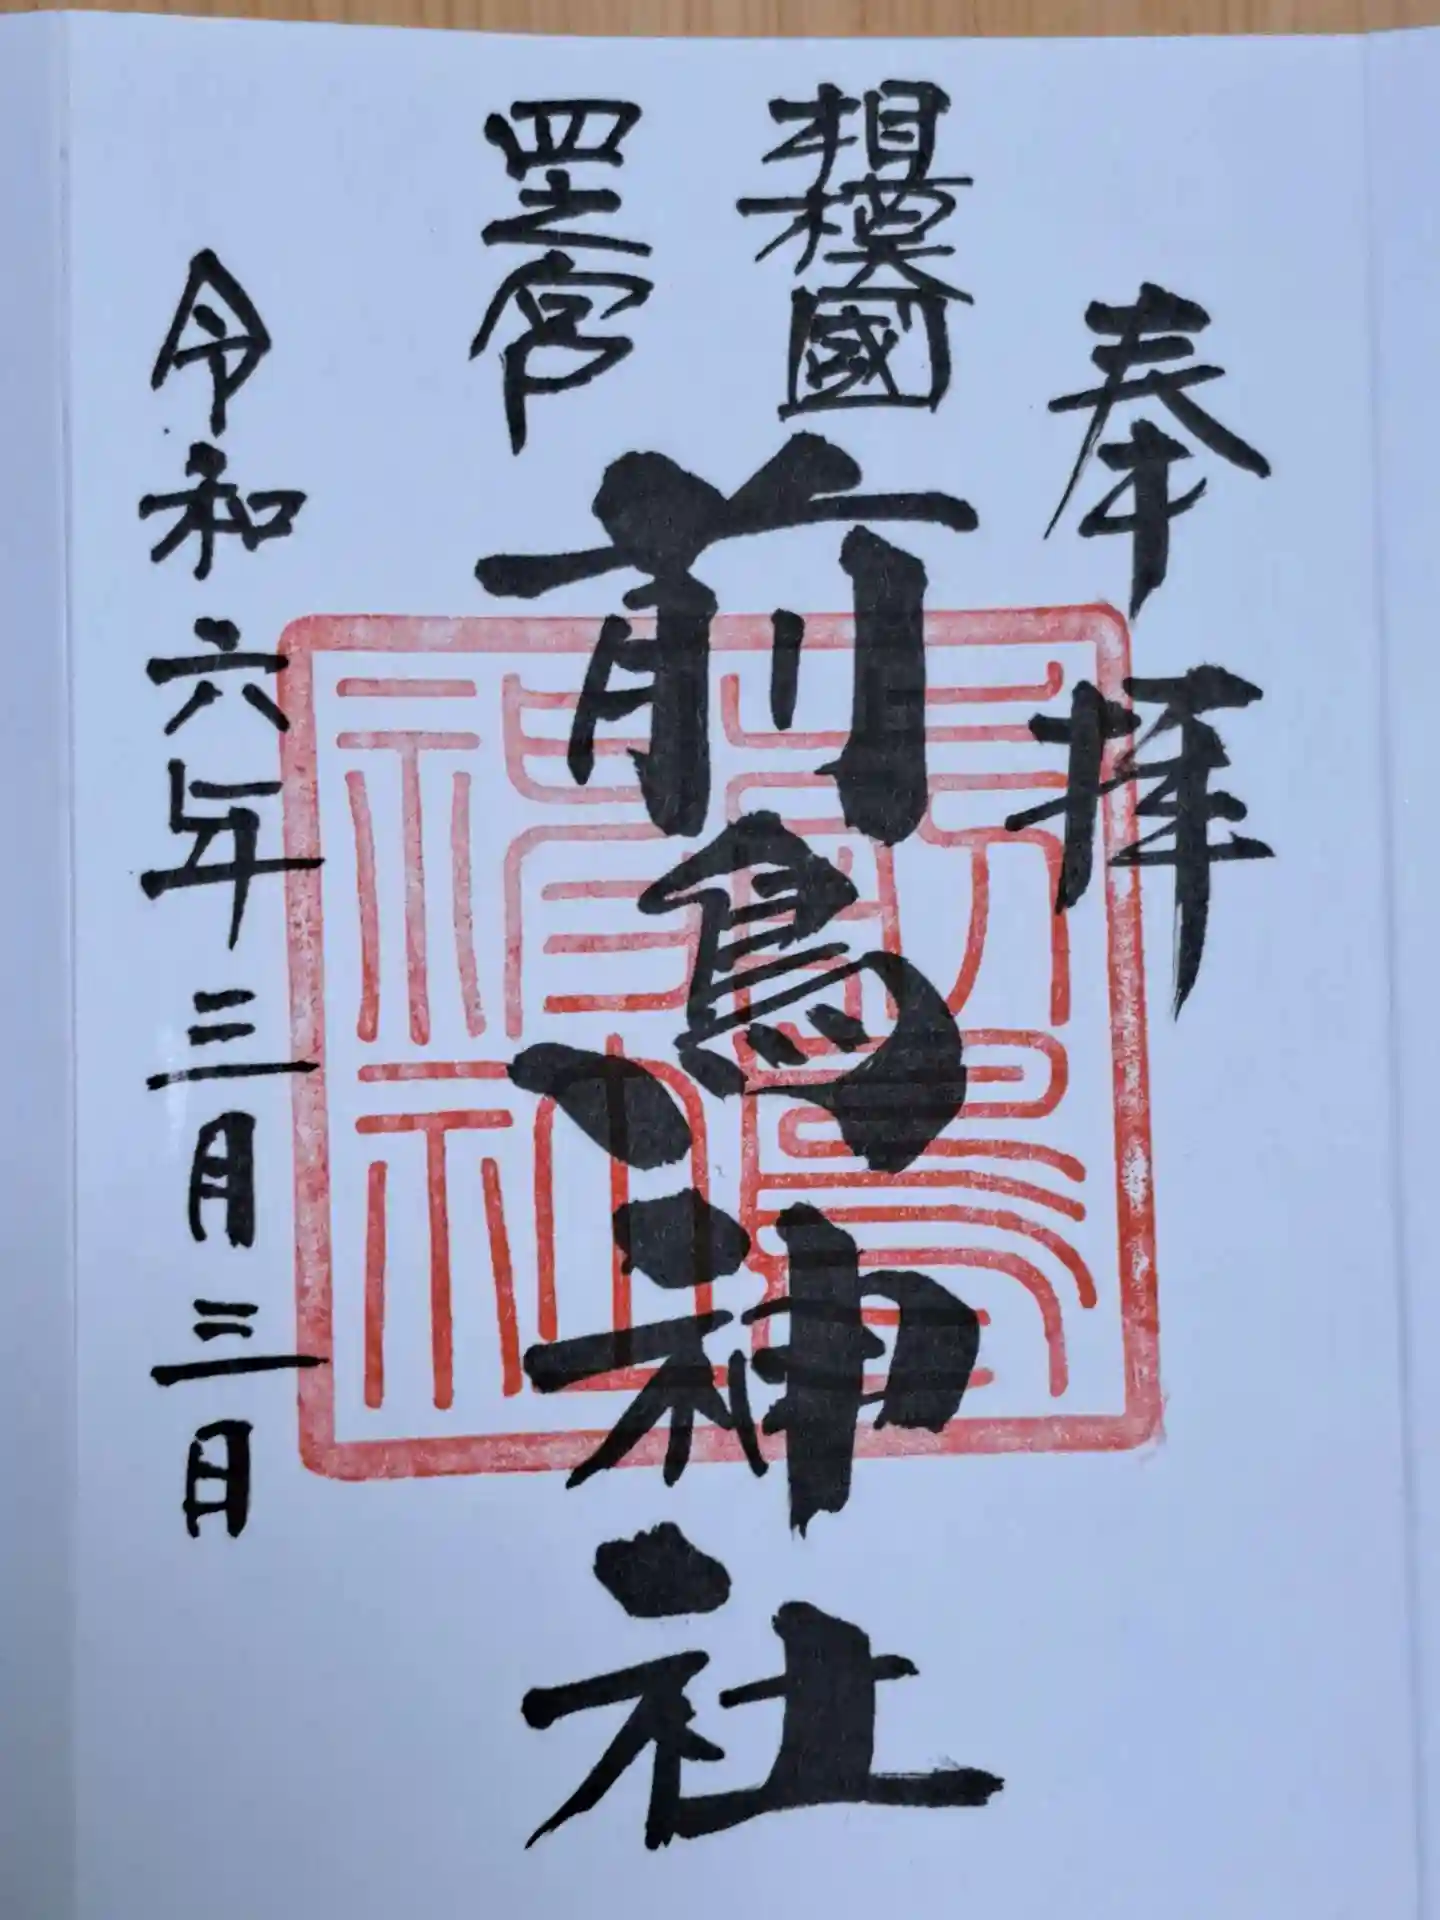 奉拝
相模國
四之宮
前鳥神社
令和六年三月三日
前鳥神社